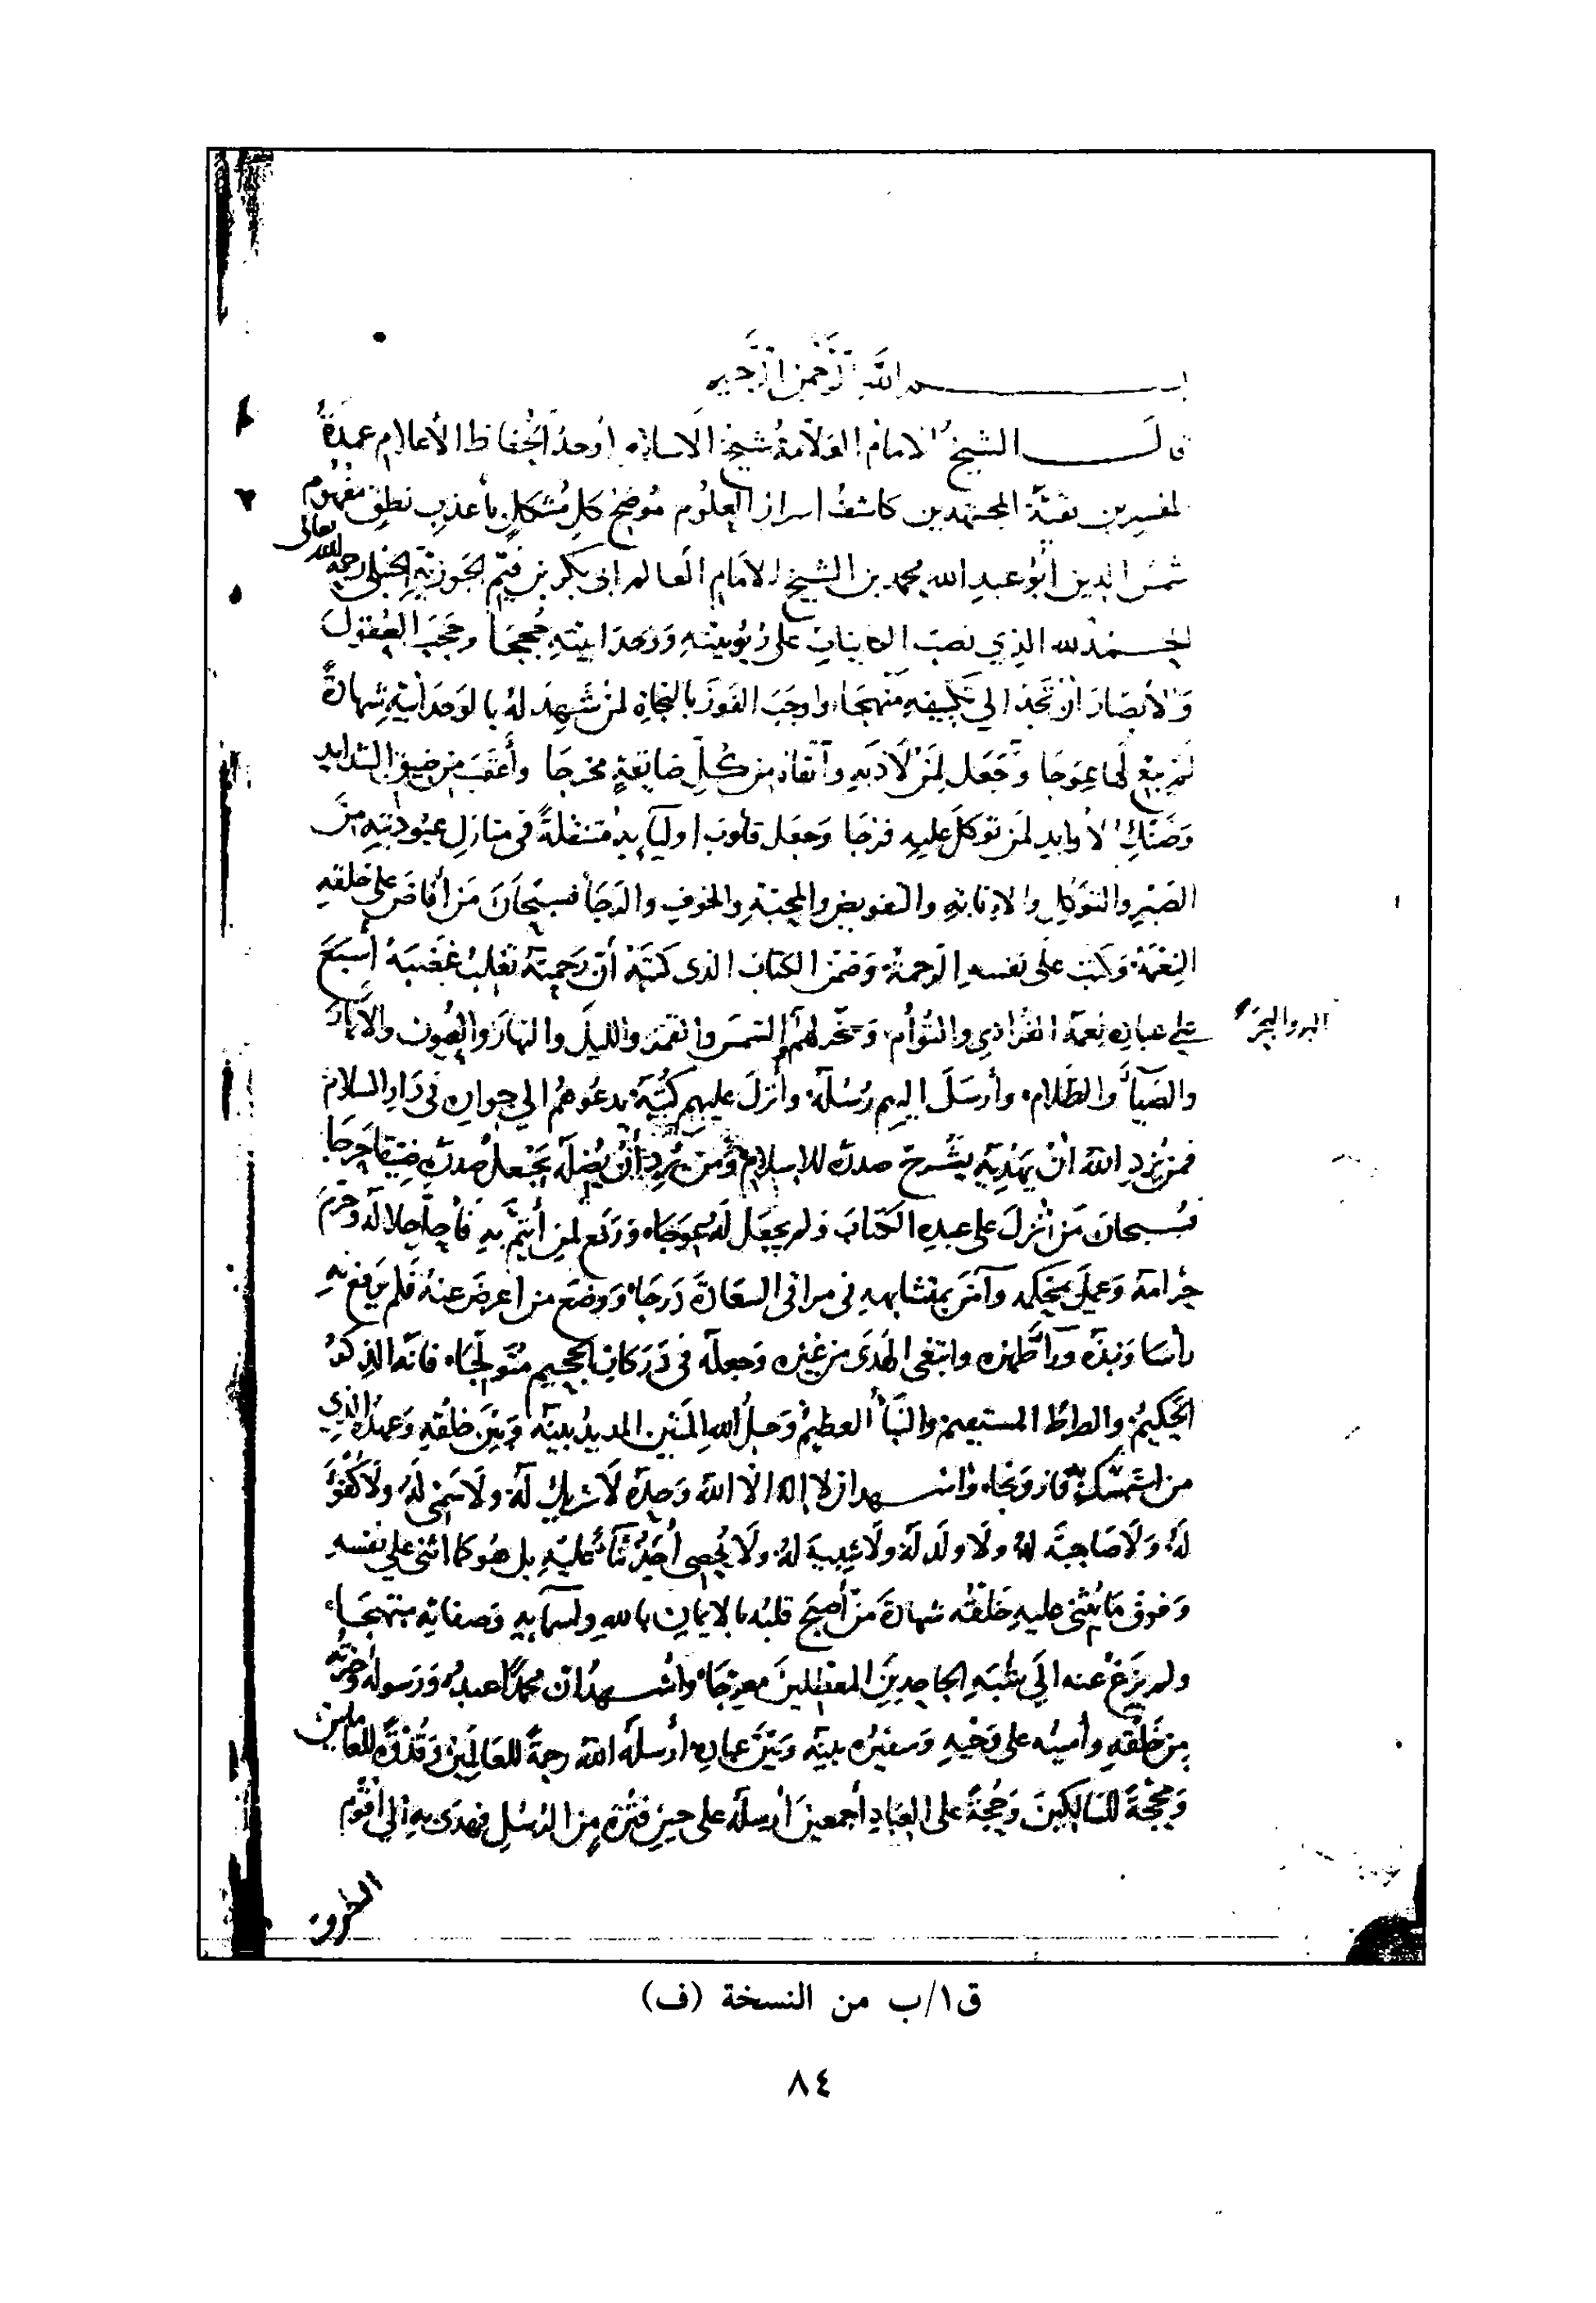 بسم الله الرحمن الرحيم
قال الشيخ الامام العلامة شيخ الاسلام أوحد الحفاظ الأعلام عمدة
المفسرين بقية المجتهدين كاشف اسرار العلوم موضح كل مشكل بأعذب نطق مفهوم
شمس الدين أبو عبد الله محمد بن الشيخ الامام العالم ابى بكر بن قيم الجوزية الحنبلي رحمه الله تعالى
الحمد لله الذي نصب الكاينات على ربوبيته ووحدانيته حججا وحجب العقول
والأبصار ان تجد الي تكييفه منهجا وأوجب الفوز بالنجاة لمن شهد له بالوحدانية شهادة
لم يبغ لها عوجا وجعل لمن لاذ به واتقاه من كل ضايقة مخرجا وأعقب من ضيق الشدايد
وضنك الاوابد لمن توكل عليه فرجا وجعل قلوب اوليايه متنقلة في منازل عبوديته من
الصبر والتوكل والانابة والتفويض والمحبة والخوف والرجا فسبحان من أفاض على خلقه
النعمة وكتب على نفسه الرحمة وضمن الكتاب الذى كتبه أن رحمته تغلب غضبه أسبغ
علي عباده نعمه الفرادي والتوأم وسخر لهم الشمس والقمر والليل والنهار والعيون والأنهار
البر والبحر
والضيآ والظلام وأرسل اليهم رسله وأنزل عليهم كتبه يدعوهم الي جواره في دار السلام
فمن يرد الله أن يهديه يشرح صدره للاسلام ومن يرد أن يضله يجعل صدره ضيقا حرجا
فسبحان من أنزل على عبده الكتاب ولم يجعل له عوجا ورفع لمن أيتم به فأحل حلاله وحرم
حرامه وعمل بمحكمه وآمن بمتشابهه في مراقي السعادة درجا ووضع من اعرض عنه فلم يرفع به
رأسا ونبذه ورآ ظهره وابتغى الهدى من غيره وجعله في دركات الجحيم متولجا فانه الذكر
الحكيم والصراط المستقيم والنبأ العظيم وحبل الله المتين المديد بينه وبين خلقه وعهده الذي
من استمسك به فاز ونجا وأشهد ان لا إله الا الله وحده لا شريك له ولا سمي له ولا كفؤ
له ولا صاحبة له ولا ولد له ولا شبيه له ولا يحصي أحد ثناء عليه بل هو كما اثنى على نفسه
وفوق ما يثني عليه خلقه شهادة من أصبح قلبه بالايمان بالله وأسمآيه وصفاته مبتهجا
ولم يزغ عنه الي شبه الجاحدين المعطلين معرجا وأشهد أن محمدا عبده ورسوله وخيرته
من خلقه وأمينه على وحيه وسفيره بينه وبين عباده أرسله الله رحمة للعالمين وقدوة للعاملين
ومحجة للسالكين وحجة على العباد أجمعين أرسله على حين فترة من الرسل فهدى به الي أقوم
الطرق
ق١/ب من النسخة (ف)
٨٤